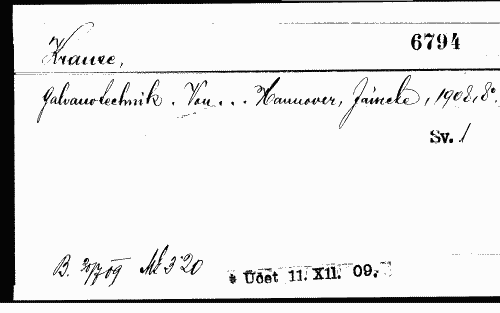 6794
Krause,
Galvanotechnik. Von... Hannover, Jänecke, 1908, 8°.
Sv. 1
B. 20/7 09 Mk 3˙20 * Účet 11. XII. 09.